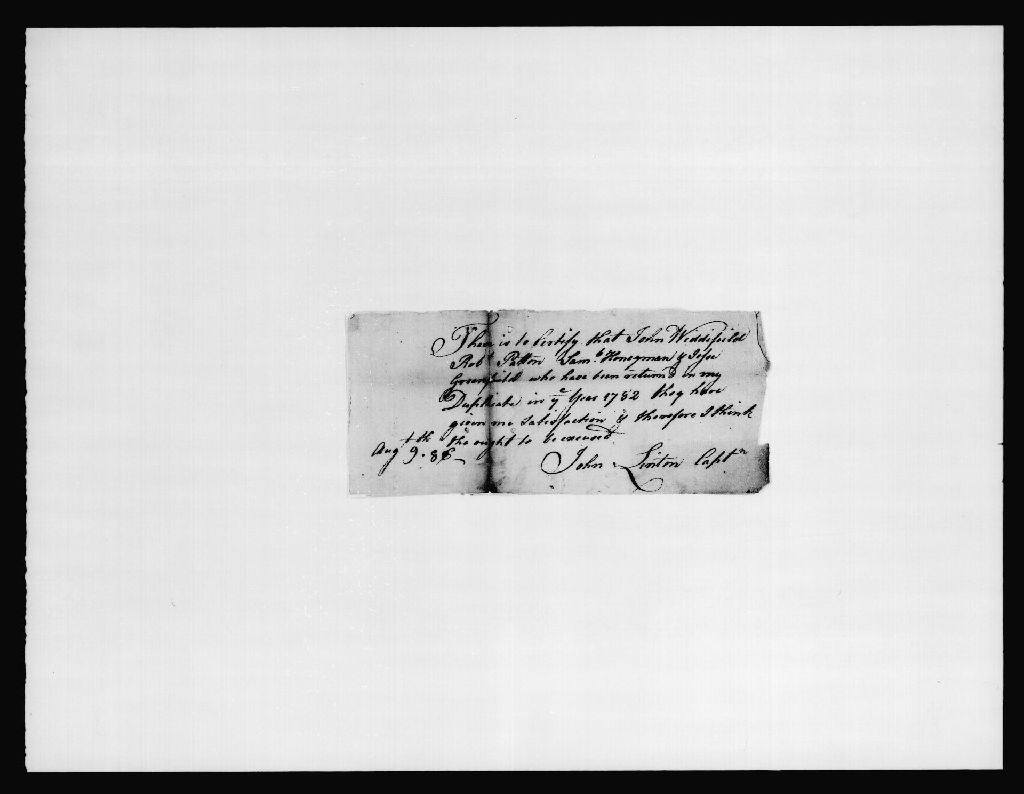 These is to Certify that John Widdifield
Robt Patton Saml Honeyman & Jesse
Greenfield who have been return'd on my
Duplicate in ye Year 1782 they have
given me Satisfaction & therefore I think
the ought to be excused
Aug 9th 86
John Linton Captn